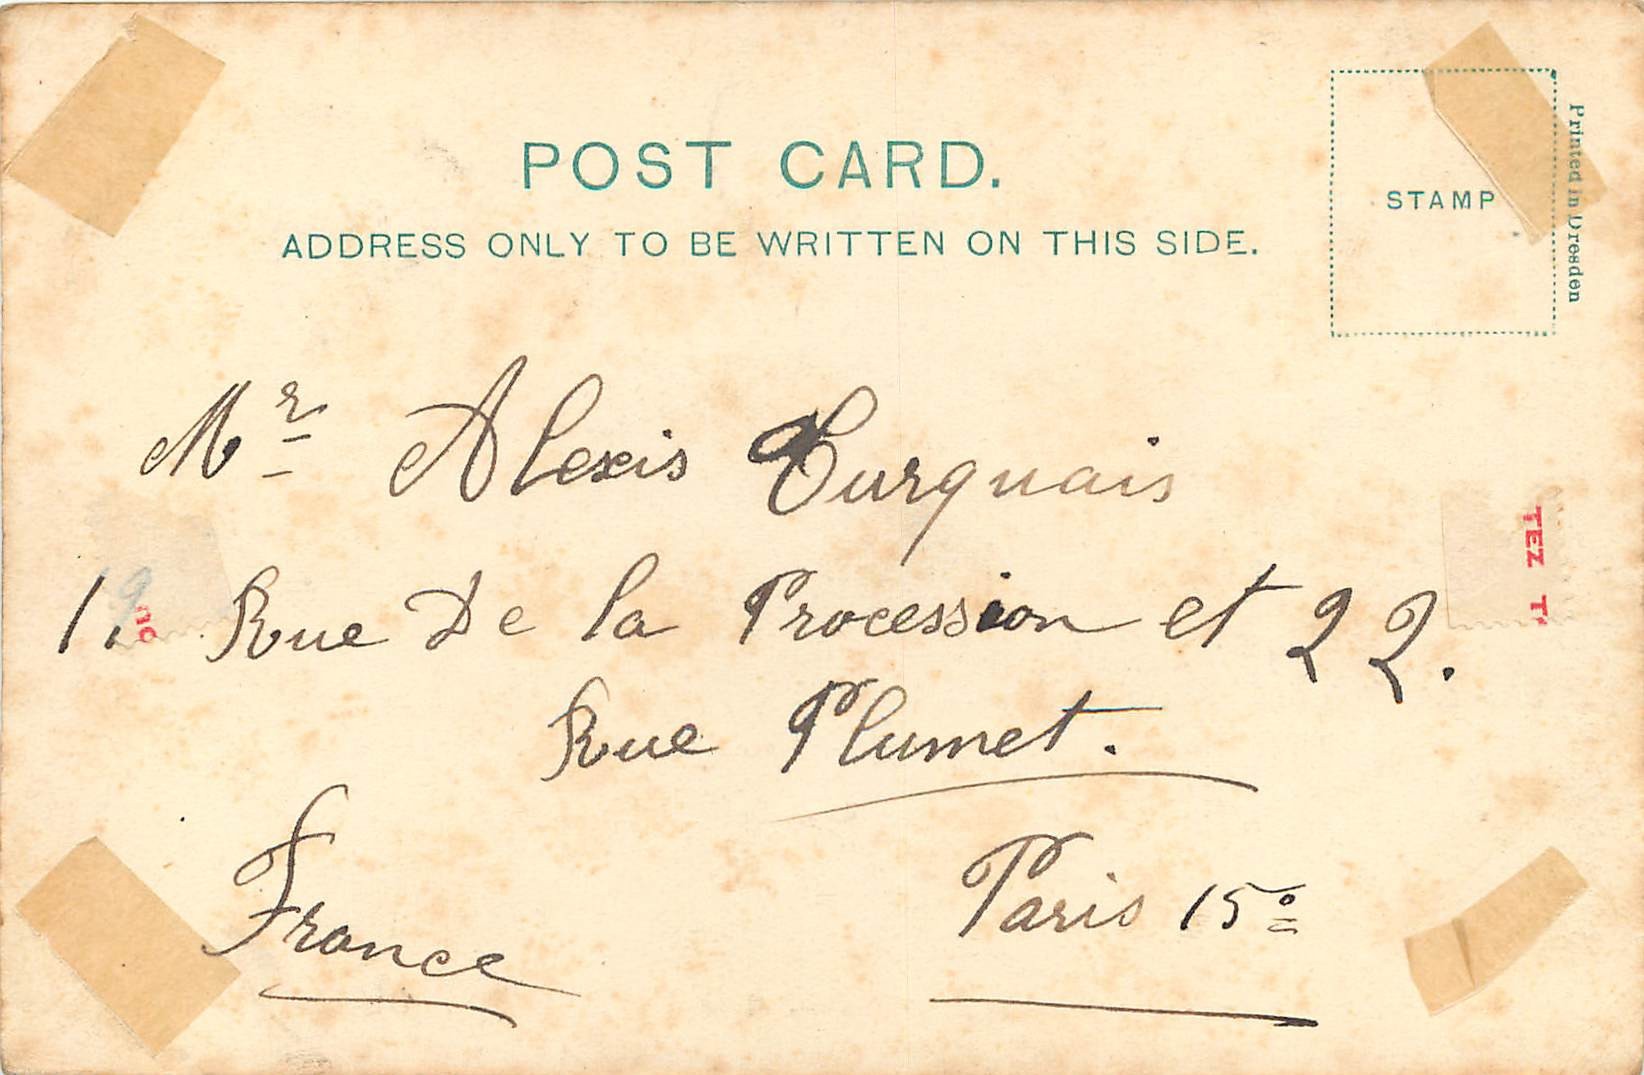 POST CARD.
ADDRESS ONLY TO BE WRITTEN ON THIS SIDE.
STAMP
Printed in Dresden
Mr Alexis Turquais
19 Rue De la Procession et 22.
Rue Plumet.
France
Paris 15e
TEZ T